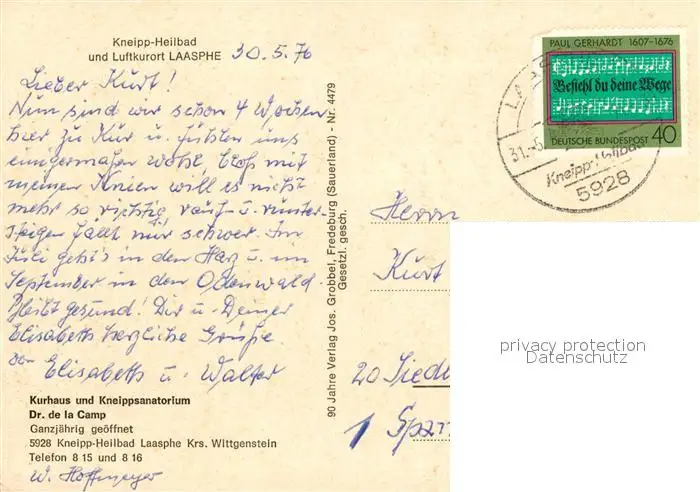 Kneipp-Heilbad
und Luftkurort LAASPHE 30.5.76
Lieber Kurt!
Nun sind wir schon 4 Wochen
hier zu Kur u. fühlen uns
einigermaßen wohl, bloß mit
meinen Knien will es nicht
mehr so richtig, rauf- u. runter-
steigen fällt mir schwer. Im
Juli geht's in den Harz u. im
September in den Odenwald.
Bleibt gesund! Dir u. Deiner
Elisabeth herzliche Grüße
von Elisabeth u. Walter
Kurhaus und Kneippsanatorium
Dr. de la Camp
Ganzjährig geöffnet
5928 Kneipp-Heilbad Laasphe Krs. Wittgenstein
Telefon 8 15 und 8 16
W. Hoffmeyer
90 Jahre Verlag Jos. Grobbel, Fredeburg (Sauerland) - Nr. 4479
Gesetzl. gesch.
PAUL GERHARDT 1607-1676
Befiehl du deine Wege
DEUTSCHE BUNDESPOST 40
31.
5928
Herrn
Kurt
20
1
privacy protection
Datenschutz